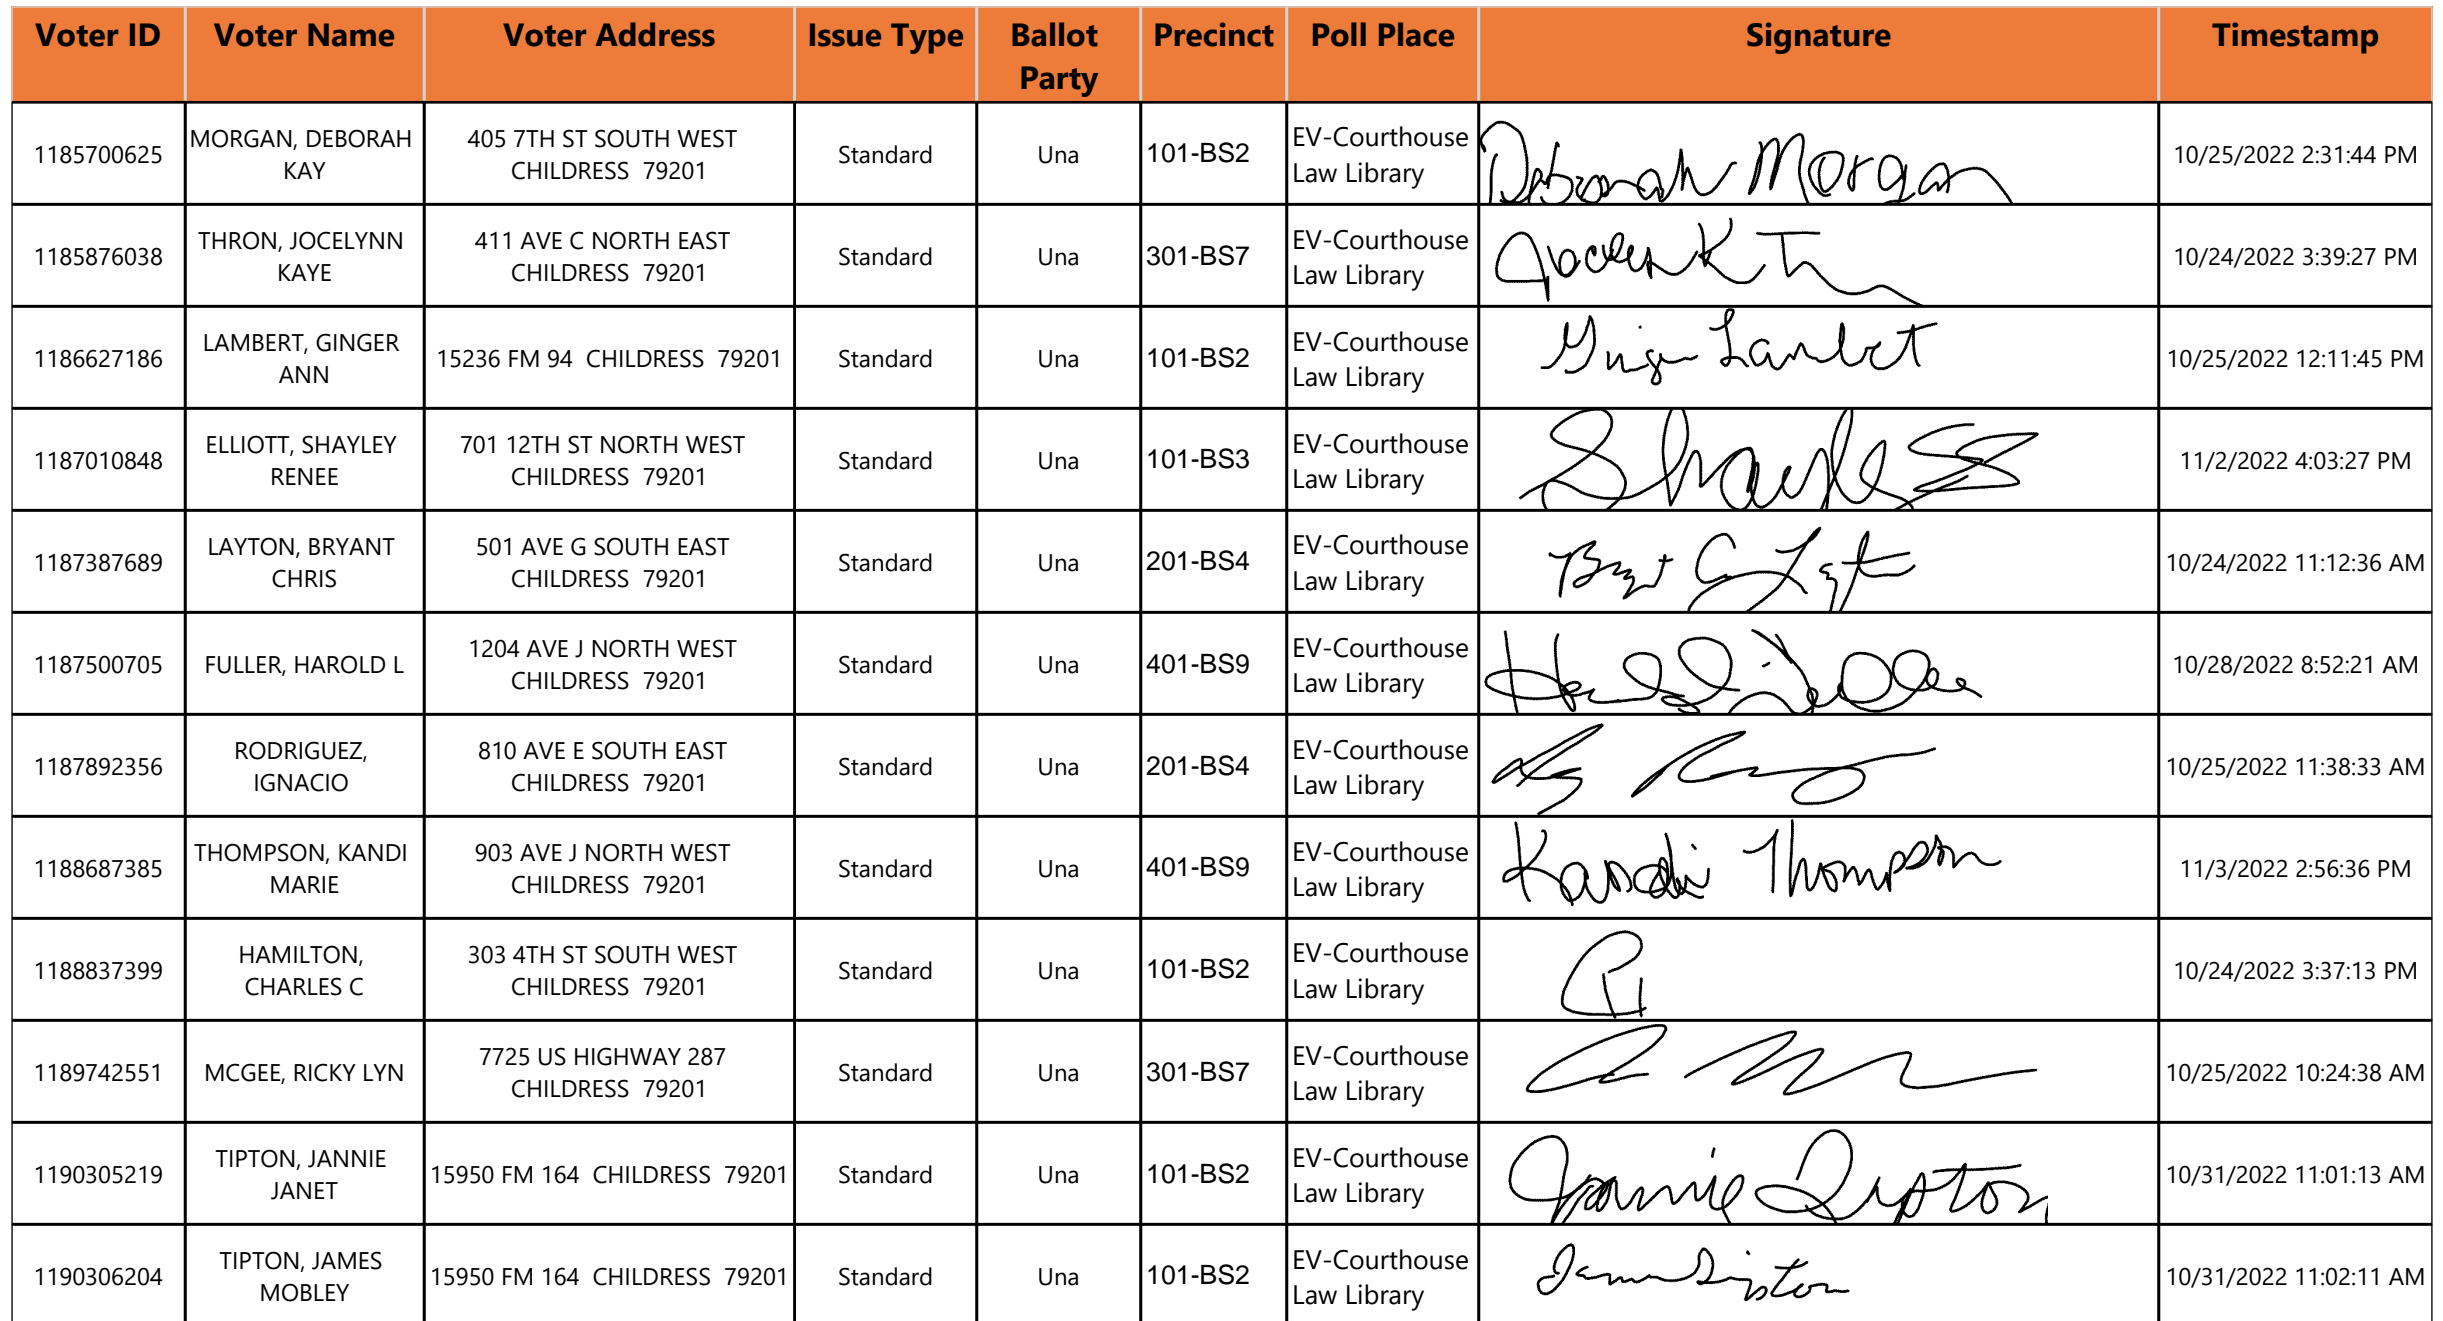 Voter ID Voter Name Voter Address Issue Type Ballot Party Precinct Poll Place Signature Timestamp
1185700625 MORGAN, DEBORAH KAY 405 7TH ST SOUTH WEST CHILDRESS 79201 Standard Una 101-BS2 EV-Courthouse Law Library Deborah Morgan 10/25/2022 2:31:44 PM
1185876038 THRON, JOCELYNN KAYE 411 AVE C NORTH EAST CHILDRESS 79201 Standard Una 301-BS7 EV-Courthouse Law Library 10/24/2022 3:39:27 PM
1186627186 LAMBERT, GINGER ANN 15236 FM 94 CHILDRESS 79201 Standard Una 101-BS2 EV-Courthouse Law Library Ginger Lambert 10/25/2022 12:11:45 PM
1187010848 ELLIOTT, SHAYLEY RENEE 701 12TH ST NORTH WEST CHILDRESS 79201 Standard Una 101-BS3 EV-Courthouse Law Library 11/2/2022 4:03:27 PM
1187387689 LAYTON, BRYANT CHRIS 501 AVE G SOUTH EAST CHILDRESS 79201 Standard Una 201-BS4 EV-Courthouse Law Library 10/24/2022 11:12:36 AM
1187500705 FULLER, HAROLD L 1204 AVE J NORTH WEST CHILDRESS 79201 Standard Una 401-BS9 EV-Courthouse Law Library 10/28/2022 8:52:21 AM
1187892356 RODRIGUEZ, IGNACIO 810 AVE E SOUTH EAST CHILDRESS 79201 Standard Una 201-BS4 EV-Courthouse Law Library 10/25/2022 11:38:33 AM
1188687385 THOMPSON, KANDI MARIE 903 AVE J NORTH WEST CHILDRESS 79201 Standard Una 401-BS9 EV-Courthouse Law Library Kandi Thompson 11/3/2022 2:56:36 PM
1188837399 HAMILTON, CHARLES C 303 4TH ST SOUTH WEST CHILDRESS 79201 Standard Una 101-BS2 EV-Courthouse Law Library 10/24/2022 3:37:13 PM
1189742551 MCGEE, RICKY LYN 7725 US HIGHWAY 287 CHILDRESS 79201 Standard Una 301-BS7 EV-Courthouse Law Library 10/25/2022 10:24:38 AM
1190305219 TIPTON, JANNIE JANET 15950 FM 164 CHILDRESS 79201 Standard Una 101-BS2 EV-Courthouse Law Library Jannie Tipton 10/31/2022 11:01:13 AM
1190306204 TIPTON, JAMES MOBLEY 15950 FM 164 CHILDRESS 79201 Standard Una 101-BS2 EV-Courthouse Law Library James Tipton 10/31/2022 11:02:11 AM